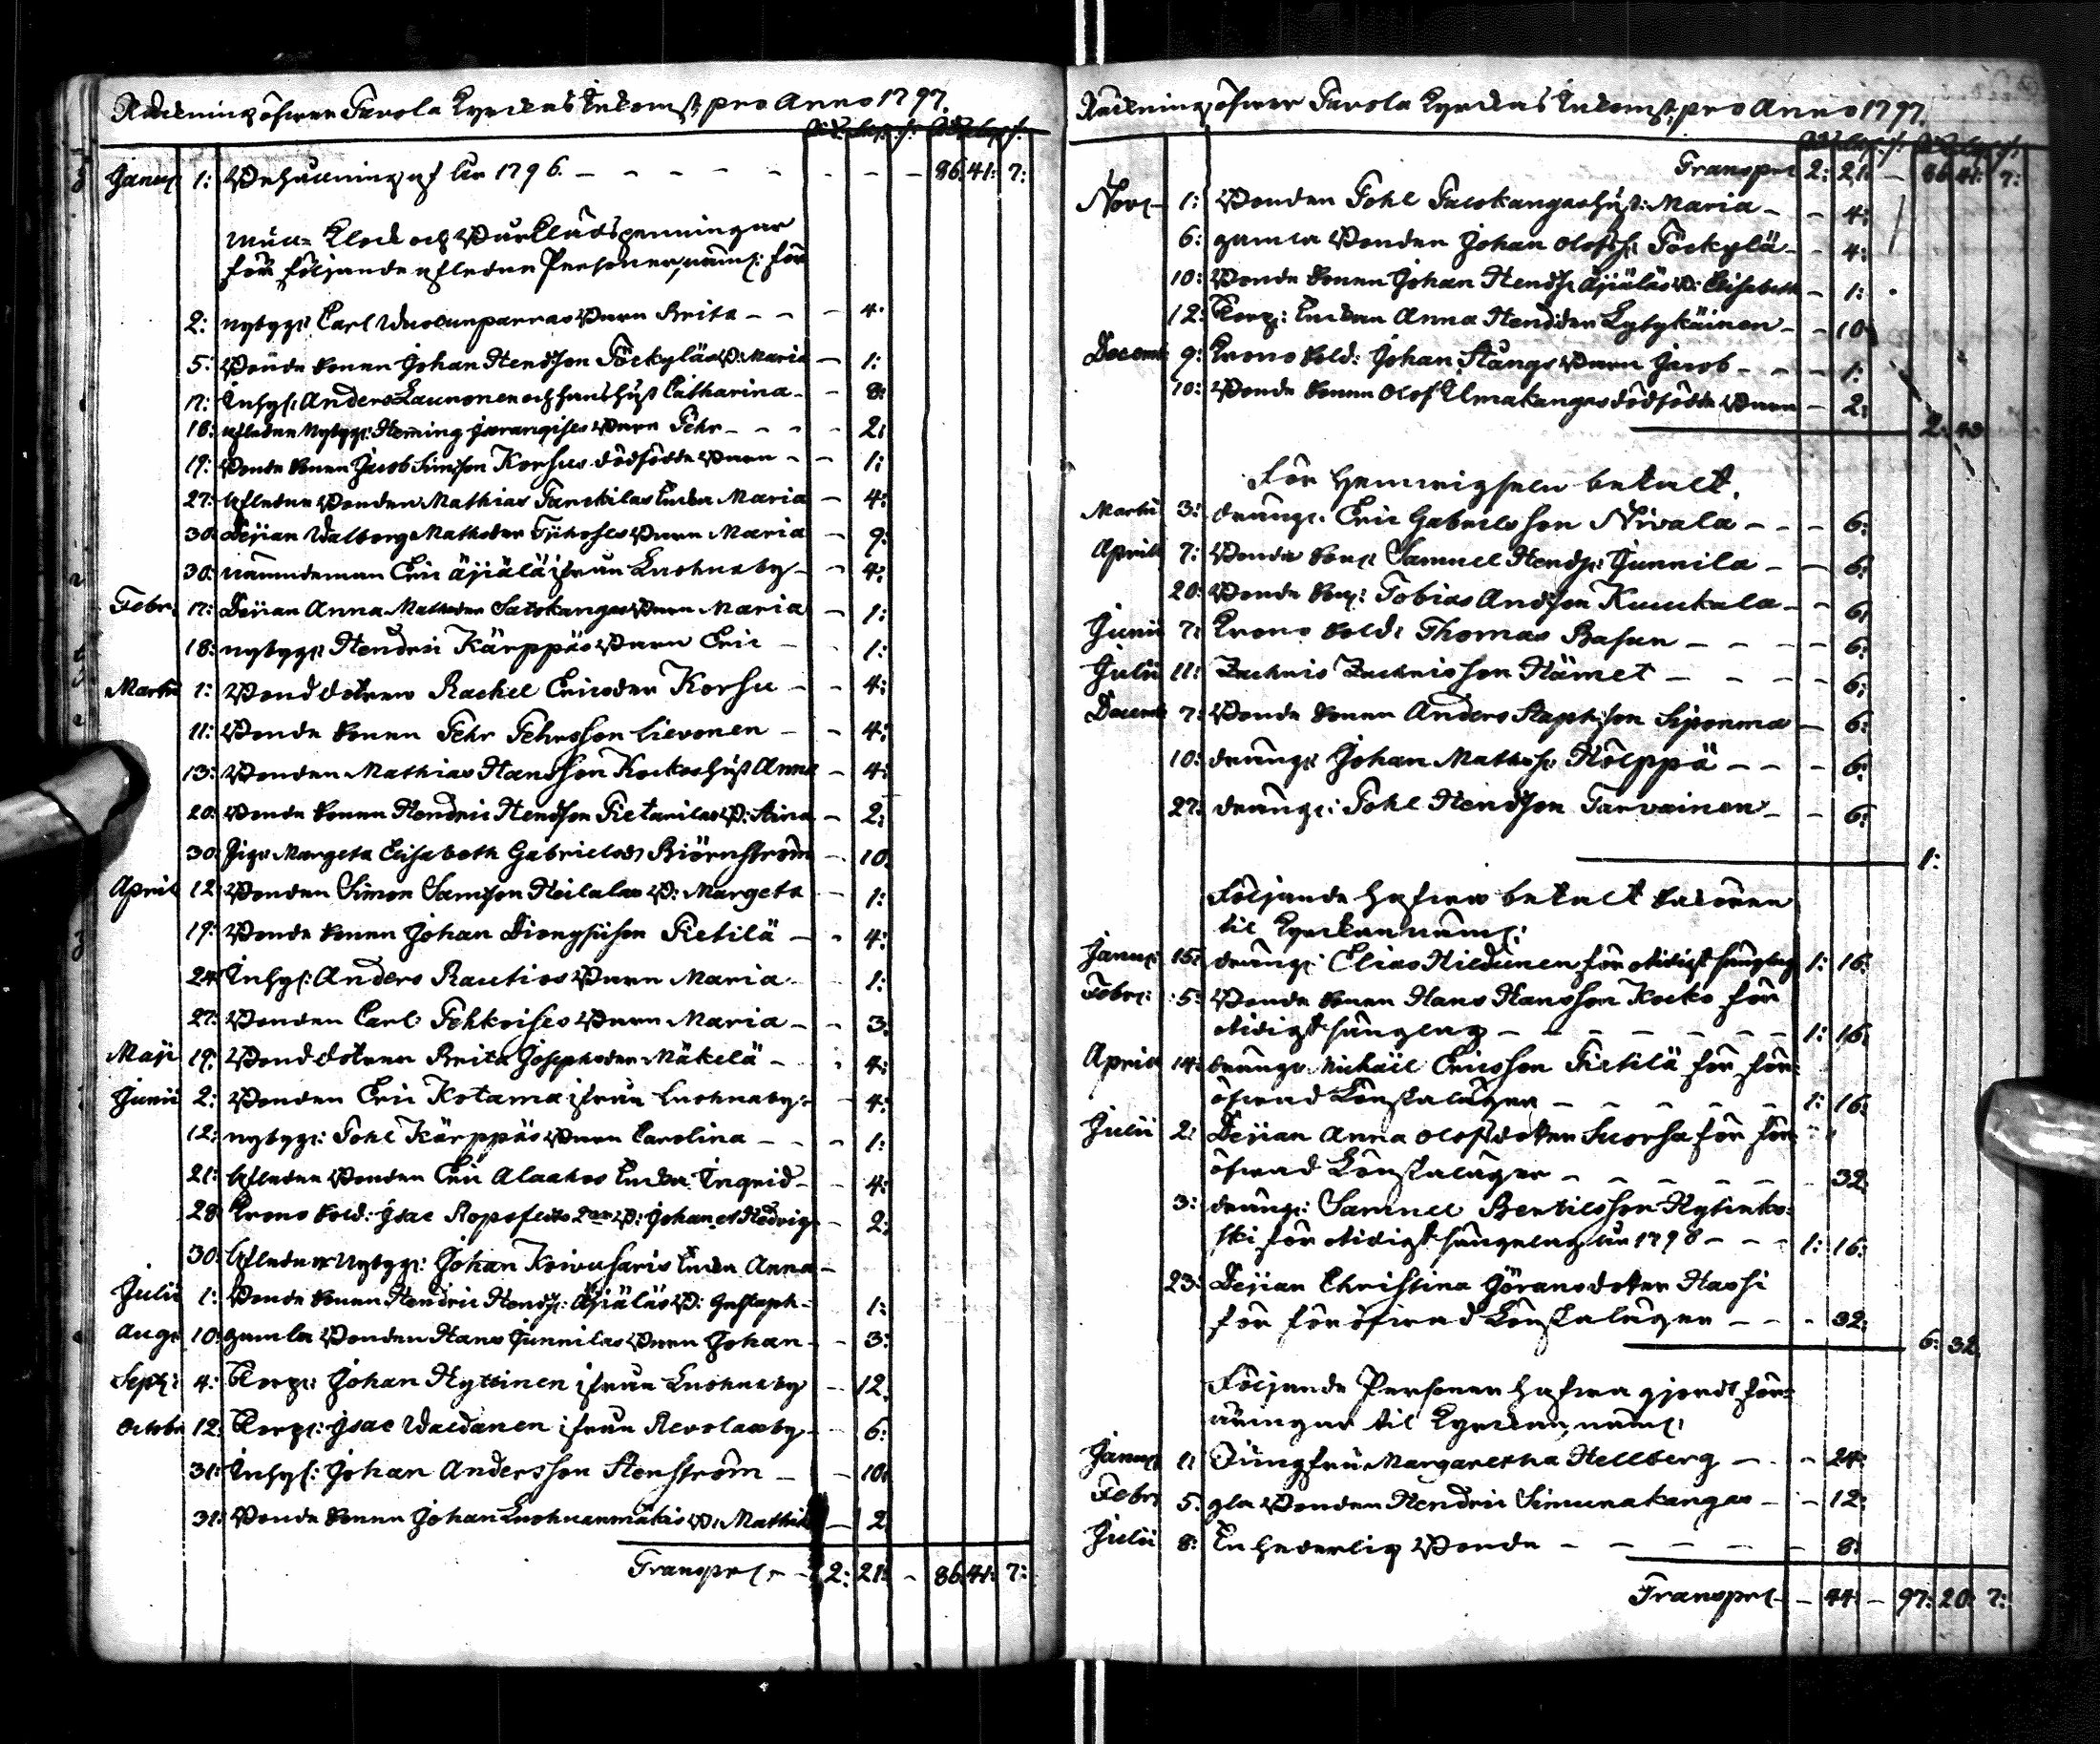 Räckning öfwer Pavola Kyrckas Inkomst, pro Anno 1797.
Rd: Sk: r: Rd: Sk: r:
Janu: 1: Behållning af år 1796. - - - - - - - 86. 41: 7:
Mull- Klock och Bårklädspenningar
för följande afledne Personer, näml: för
2: nybygg: Carl Barn Brita - - - 4.
5: Bonde Sonen Johan Hendsson Töckyläs B: Maria - 1:
17: Inhys: Anders Launonen och hans hust Catharina - - 8:
18: afledne Nybygg: Heming Barn Pehr - - - - 2:
19: Bonde Sonen Jacob Simsson Korhus dödfödde Barn - - 1:
27: Afledne Bonden Mathias Enka Maria - 4:
30: Pijgan Walborg Mathsdr Barn Maria - 9:
30: nämndeman Eric Äijälä ifrån Luohuaby - - 4:
Febr: 17: Pijgan Anna Mathsdr Barn Maria - 1:
18: nybygg: Hendric Kärppäs Barn Eric - - 1:
Martii 1: Bonddotren Rachel Ericsdr Korhu - - 4:
11: Bonde Sonen Pehr Pehrsson Lievonen - - 4:
13: Bonden Mathias Hansson Kockos hust Anna - 4:
20: Bonde Sonen Hendric Hendsson Pietarilas B: Stina - 2:
30: Pig: Margeta Elisabeth Gabrielsdr Biörnström - 10.
April 12: Bonden Simon Samsson Heilalas B: Margeta - 1:
19: Bonde Sonen Johan Pietilä - - 4:
24: Inhys: Anders Rautios Barn Maria - - 1:
27: Bonden Carl Barn Maria - - 3.
Maji 19: Bonddotren Brita Josephsdr Mäkelä - - 4:
Junii 2: Bonden Eric Kotama ifrån Luohuaby - - 4:
12: nybygg: Pohl Kärppäs Barn Carolina - - - 1:
21: Afledne Bonden Eric Alaahos Enka Ingrid - - 4:
28: Krono Sold: Isac 2ne B: Johan et Hedvig - - 2:
30: Afledne Nybygg: Johan Enka Anna -
Julii 1: Bonde Sonen Hendric Hends: Äijäläs B: Gustaph - 1:
Aug: 10: gamla Bonden Hans Junnilas Barn Johan - - 3:
Sept: 4: Torp: Johan Hyttinen ifrån Luohuaby - - 12.
Octobr 12: Torp: Isac ifrån Revolaxby - - 6:
31: Inhys: Johan Andersson Stenström - - 10:
31: Bonde Sonen Johan Luohuanmäkis B: Mathi - 2.
Transpt - - 2: 21: - 86. 41: 7:
Räckning öfwer Pavola Kyrckas Inkomst, pro Anno 1797.
Rd: Sk: r: Rd: Sk: r:
Transpt 2: 21: - 86. 41: 7:
Nov: 1: Bonden Pohl hust: Maria - - 4:
6: gamla Bonden Johan Olofss: Töckylä - - 4:
10: Bonde Sonen Johan Hends: Äijäläs B: Elisabeth - 1:
12: Torp: Enkan Anna Hendsdr Lytykäinen - - 10:
Decemb 9: Krono Sold: Johan Stångs Barn Jacob - - - 1:
10: Bonde Sonen Olof Ulmakangas dödfödde Barn - 2:
2: 43.
För Hemvigseln betalt.
Martii 3: dräng: Eric Gabrielsson Nivala - - - 6:
April 7: Bonde Son: Samuel Hends: Junnila - - 6:
20: Bonde Son: Tobias Andsson Kuukala - - 6:
Junii 7: Krono Sold: Thomas Basun - - - - 6:
Julii 11: Zachris Zachrisson Hämet - - - - 6:
Decemb 7: Bonde Sonen Anders Staphsson Siponma - 6:
10: dräng: Johan Mathss: Hölppä - - - 6:
27: dräng: Pohl Hendsson Tarvainen - - 6:
1:
Följande hafwa betalt
til Kyrckan näml:
Janu: 15: dräng: Elias för otidigt sänglag 1: 16:
Febr: 5: Bonde Sonen Hans Hansson Kocko för
otidigt sänglag - - - - - - - 1: 16.
April 14: dräng: Michaël Ericsson Pietilä för för-
öfwad Lönskaläger - - - - - 1: 16:
Julii 2: Pijgan Anna Olofsdoter Suorsa för för-
öfwad Lönskaläger - - - - - - 32.
3: dräng: Samuel Bertilsson Hytinko-
ski för otidigt sängelag år 1798 - - - 1: 16:
23: Pijgan Christina Göransdoter Hassi
för föröfwad Lönskaläger - - - 32:
6: 32.
Följande Personer hafwa gjordt för-
äringar til Kyrckan, näml:
Janu: 1: Jungfru Margaretha Hellberg - - - 24:
Febr: 5. gla Bonden Hendric Simunakangas - - 12:
Julii 8: En hederlig Bonde - - - - - - 8:
Transpt - - 44: - 97: 20: 7: